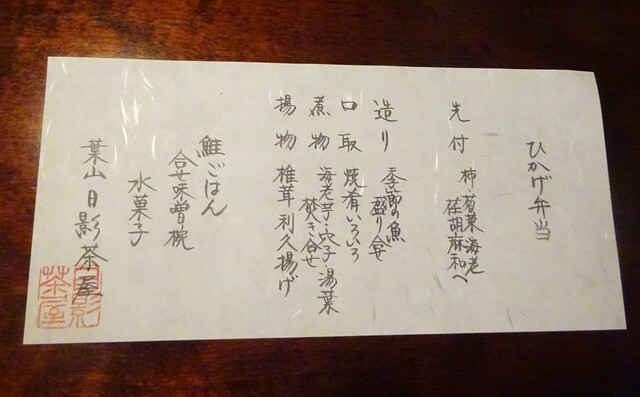 ひかげ弁当
先付 柿・菊菜・海老
荏胡麻和へ
造り 季節の魚
盛り合せ
口取 焼肴いろいろ
煮物 海老芋・穴子・湯葉
焚き合せ
揚物 椎茸利久揚げ
鮭ごはん
合せ味噌椀
水菓子
葉山日影茶屋
日影
茶屋